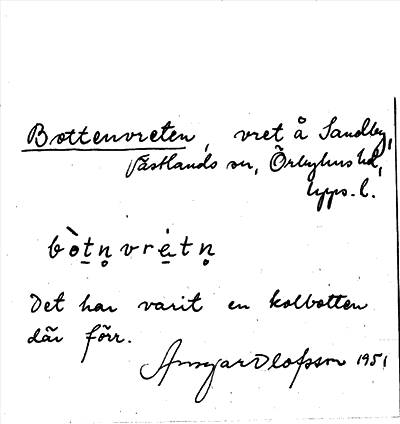 Bottenvreten, vret å Sandby,
Västlands sn, Örbyhus hd,
Upps. l.
bò̀tn̥ vré̀tn̥
Det har varit en kolbotten
där förr.
Ansgar Olofsson 1951